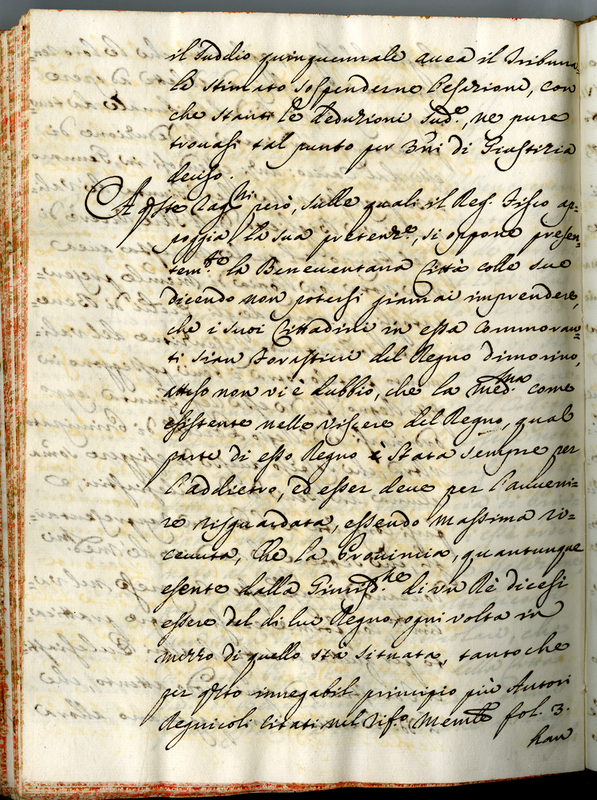 il suddio quinquennale avea il Tribuna=
le stimato sospenderne l'esazione, con
che stanti le deduzioni sud.e, ne pure
trovasi tal punto per 3ni di Giustizia
deciso.
A q̃ste rag.ni però, sulle quali il Reg. Fisco ap=
poggia la sua pretenz.e, si oppone presen=
tem.te la Beneventana Città colle sue
dicendo non potersi giamai imprendere,
che i suoi Cittadini in essa commoran=
ti sian Forastieri del Regno dimorino,
atteso non vi è dubbio, che la med.ma come
esistente nelle viscere del Regno, qual
parte di esso Regno è stata sempre per
l'addietro, ed esser deve per l'avveni=
re risguardata, essendo massima ri=
cevuta, che la Provincia, quantunque
esente dalla Giurisd.ne di un Rè dicesi
essere del di lui Regno, ogni volta in
mezzo di quello stà situata, tanto che
per q̃sto innegabil principio più Autori
Regnicoli citati nel rif.o Mem.le fol. 3.
han